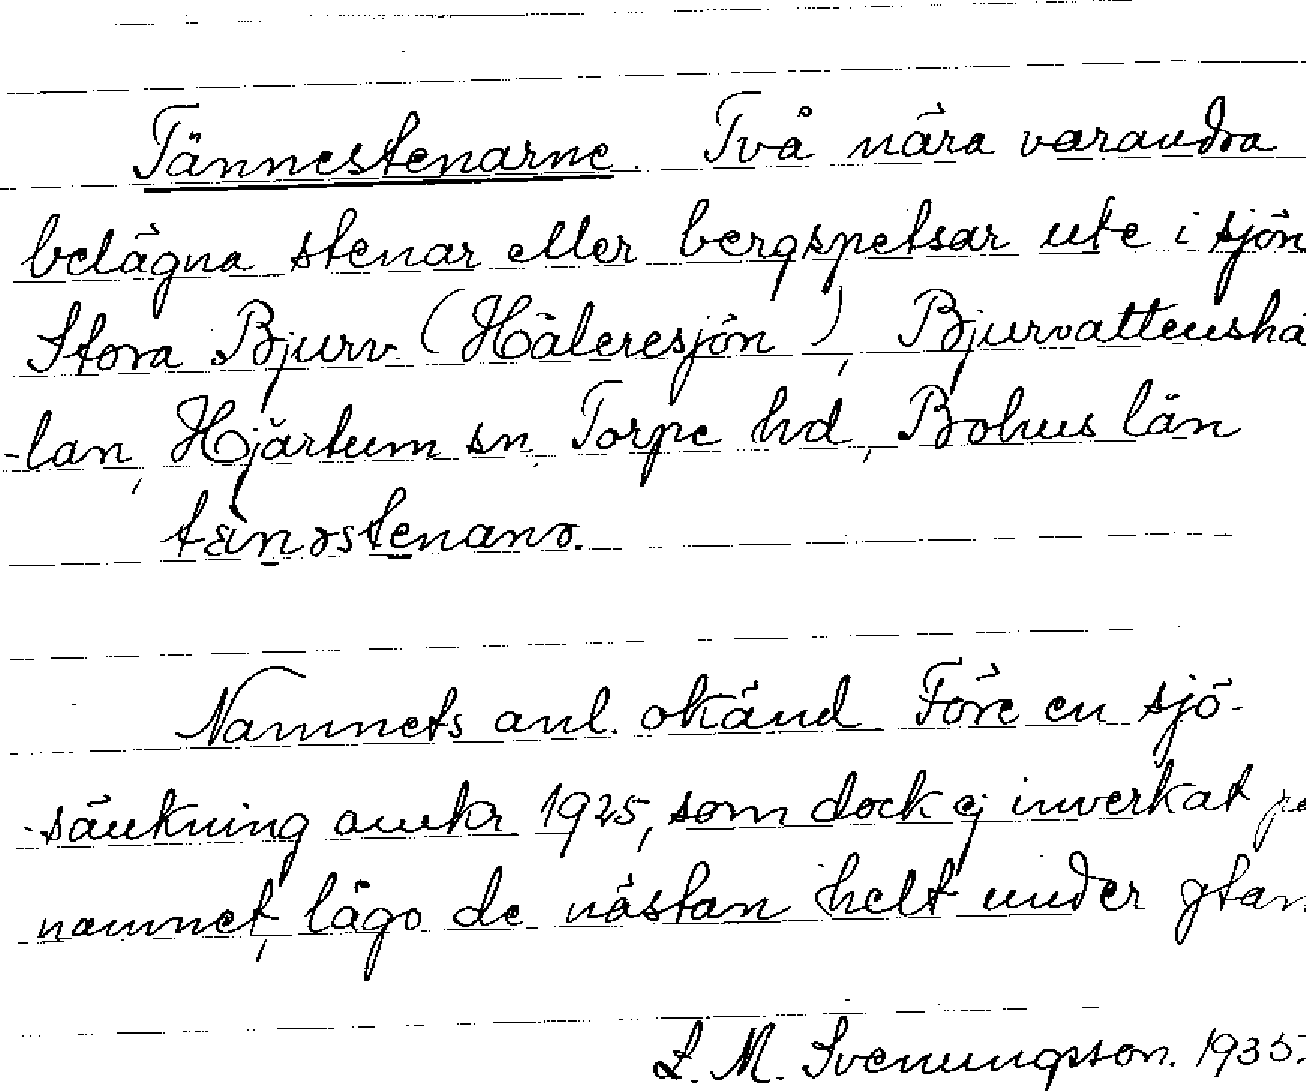 Tännestenarne. Två nära varandra
belägna stenar eller bergspetsar ute i sjön
Stora Bjurv (Häleresjön), Bjurvattenshå
-lan, Hjärtum sn, Torpe hd, Bohus län
tänostenano.
Namnets anl. okänd Före en sjö-
sänkning omkr 1925, som dock ej inverkat på
namnet, lågo de nästan helt under ytan
L. M. Svenungsson. 1935.